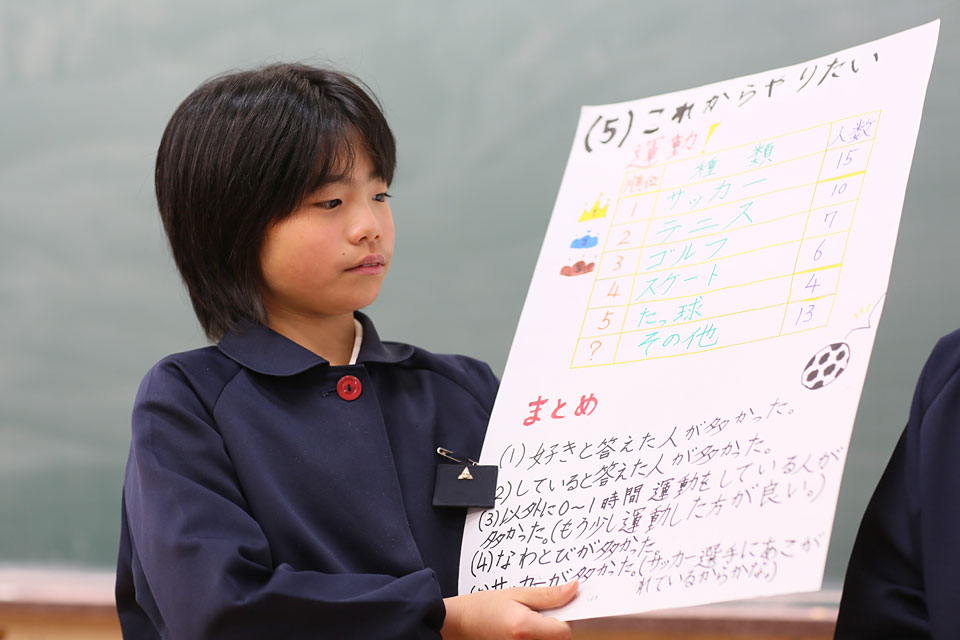 (5)これからやりたい
運動
順位 種類 人数
1 サッカー 15
2 テニス 10
3 ゴルフ 7
4 スケート 6
5 たっ球 4
? その他 13
まとめ
(1)好きと答えた人が多かった。
(2)していると答えた人が多かった。
(3)以外に0〜1時間運動をしている人が
多かった。(もう少し運動した方が良い。)
(4)なわとびが多かった
サッカーが多かった。(サッカー選手にあこが
れているからかな。)